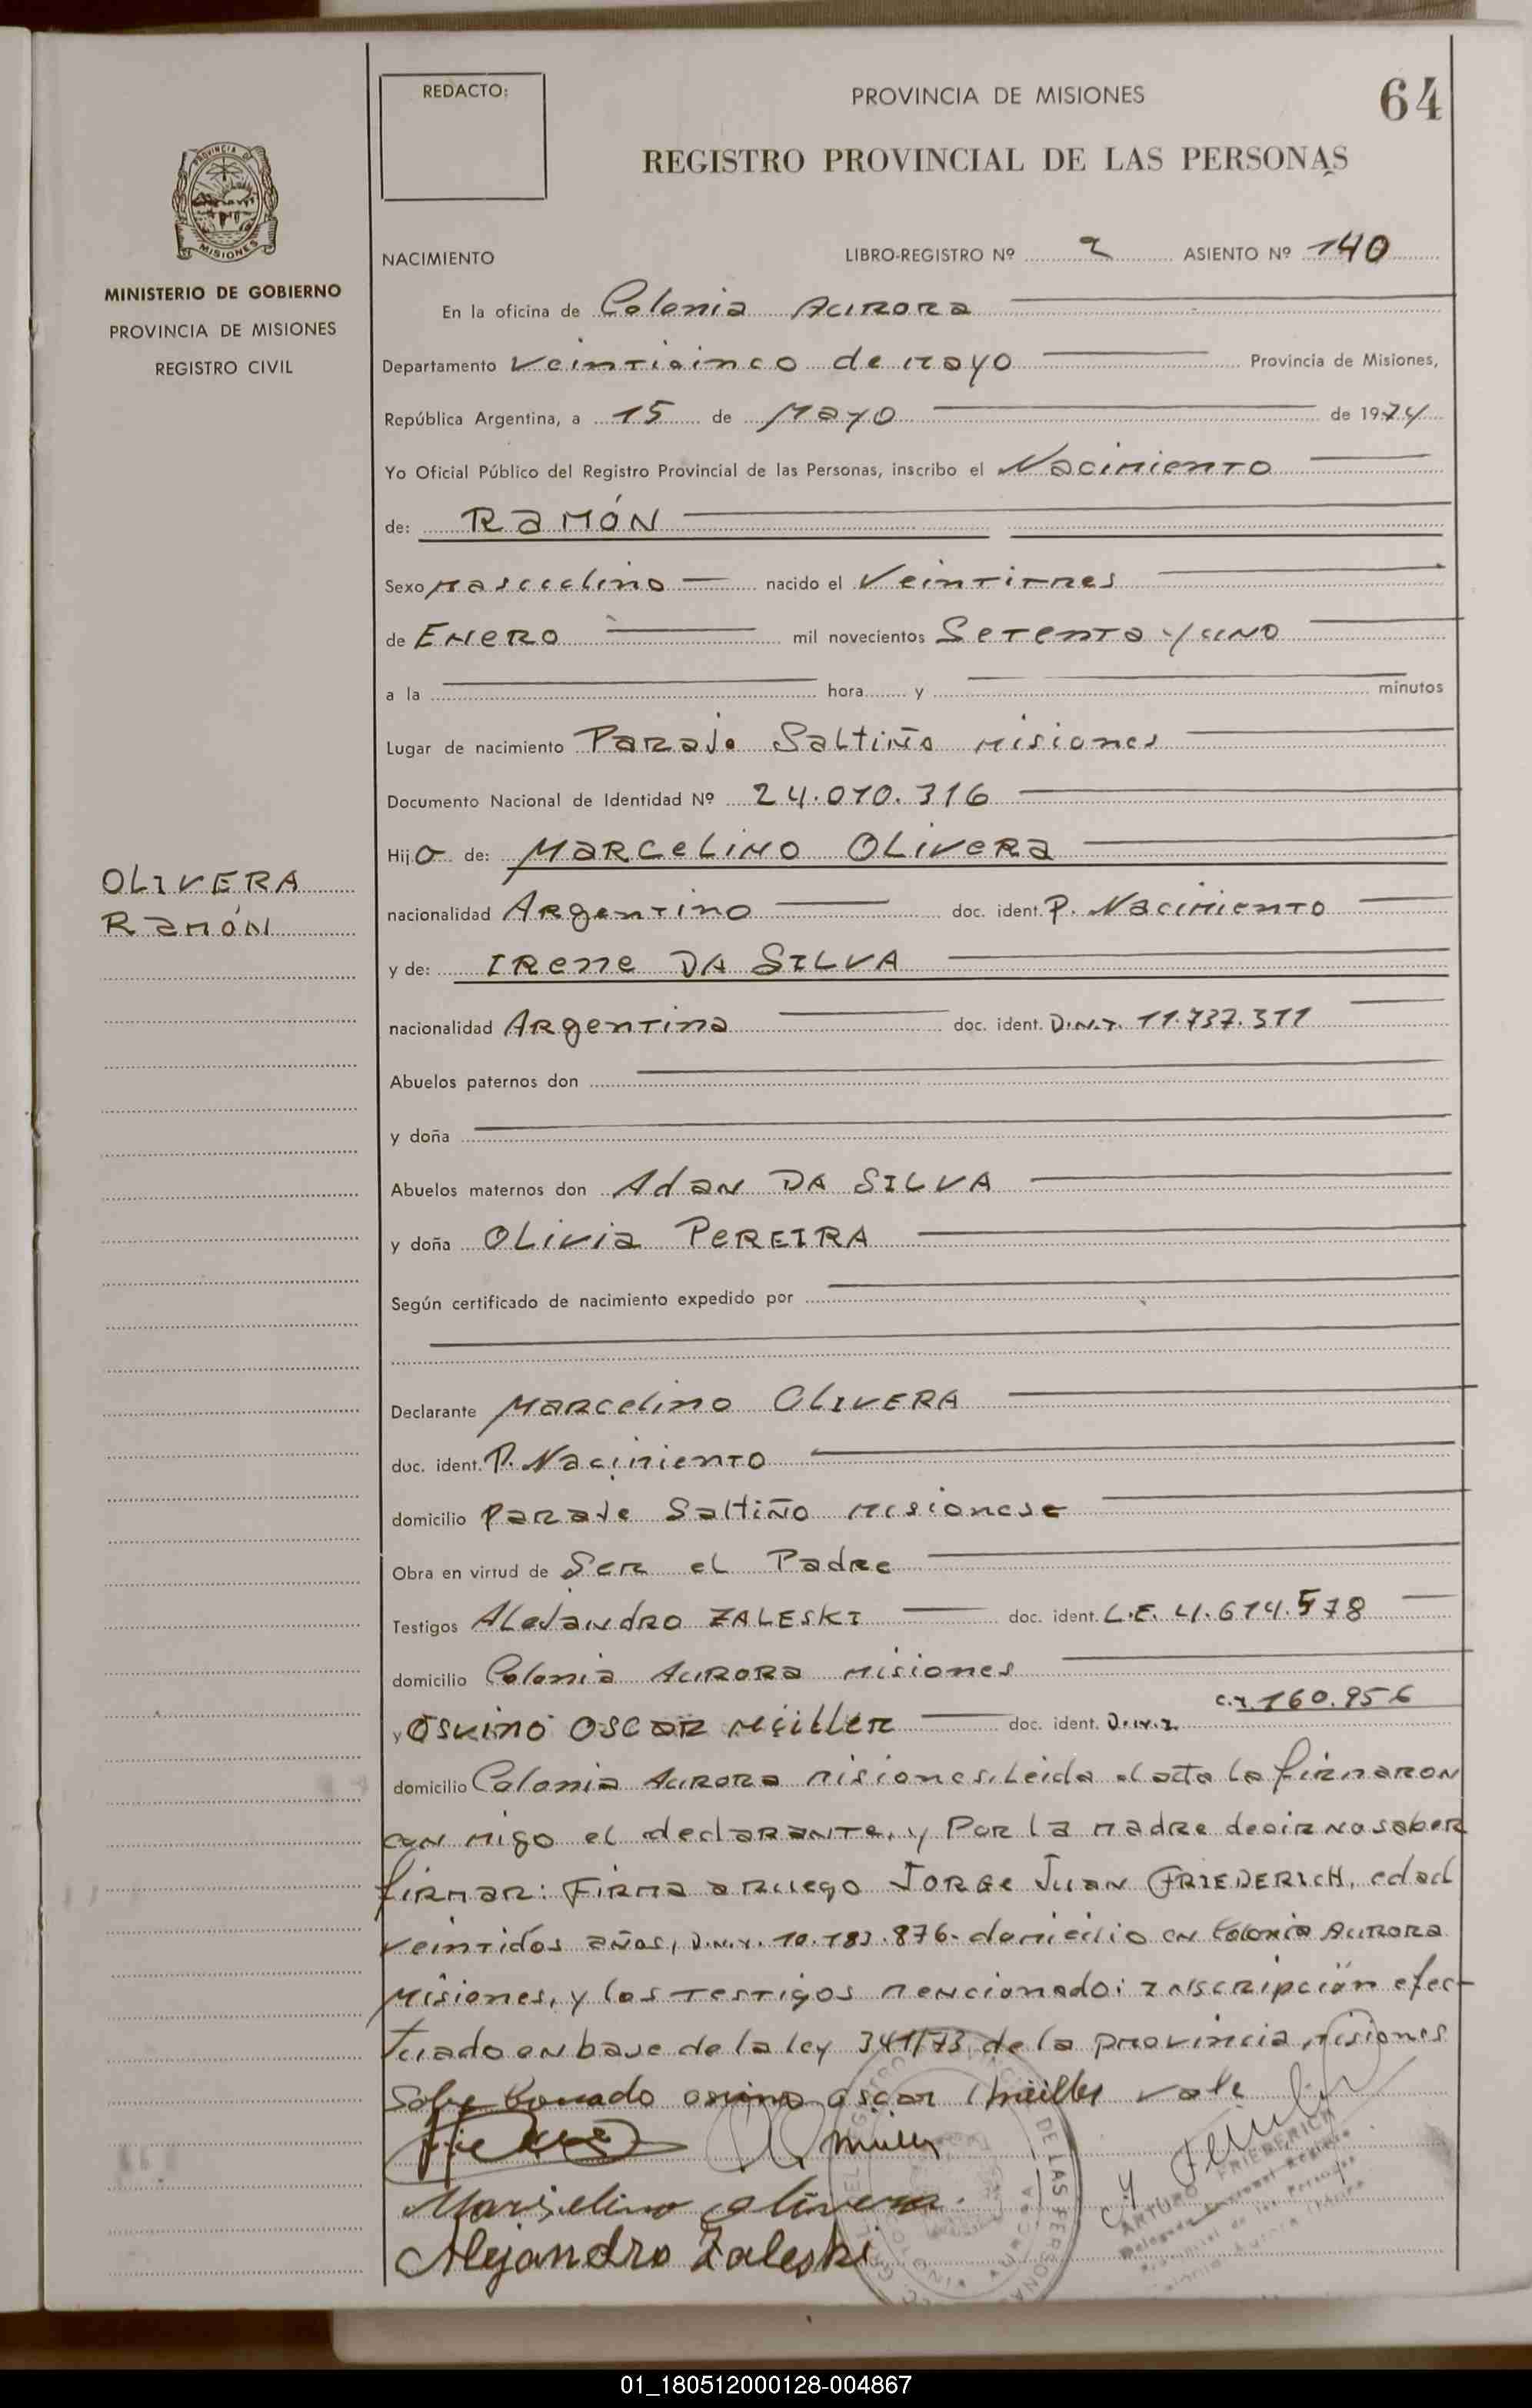 REDACTO:
PROVINCIA DE MISIONES
64
REGISTRO PROVINCIAL DE LAS PERSONAS
PROVINCIA DE
MISIONES
MINISTERIO DE GOBIERNO
PROVINCIA DE MISIONES
REGISTRO CIVIL
NACIMIENTO LIBRO-REGISTRO Nº 2 ASIENTO Nº 140
En la oficina de Colonia Aurora
Departamento Veinticinco de Mayo Provincia de Misiones,
República Argentina, a 15 de Mayo de 1974
Yo Oficial Público del Registro Provincial de las Personas, inscribo el Nacimiento
de: Ramón
Sexo Masculino nacido el Veintitres
de Enero mil novecientos Setenta y uno
a la hora y minutos
Lugar de nacimiento Paraje Saltiño Misiones
Documento Nacional de Identidad Nº 24.010.316
Hijo de: Marcelino Olivera
OLIVERA
Ramón
nacionalidad Argentino doc. ident. P. Nacimiento
y de: Irene DA SILVA
nacionalidad Argentina doc. ident. D.N.I. 11.737.311
Abuelos paternos don
y doña
Abuelos maternos don Adan DA SILVA
y doña Olivia PEREIRA
Según certificado de nacimiento expedido por
Declarante Marcelino OLIVERA
doc. ident. P. Nacimiento
domicilio Paraje Saltiño Misiones
Obra en virtud de Ser el Padre
Testigos Alejandro ZALESKI doc. ident. L.E. 4.614.578
domicilio Colonia Aurora Misiones
y Osvino Oscar Müller doc. ident. D.N.I. C.I. 160.956
domicilio Colonia Aurora Misiones. Leida el acta la firmaron
con migo el declarante, y Por la madre decir no saber
firmar: Firma a ruego Jorge Juan FRIEDERICH, edad
veintidos años, D.N.I. 10.183.876- domicilio en Colonia Aurora
Misiones, y los testigos mencionado: inscripción efec-
tuado en base de la ley 341/73, de la provincia Misiones
Sobre borrado osvino oscar Müller vale
Müller
Marselino olivera.
Alejandro Zaleski
DE LAS PERSONAS
ARTURO FRIEDERICH
01_180512000128-004867